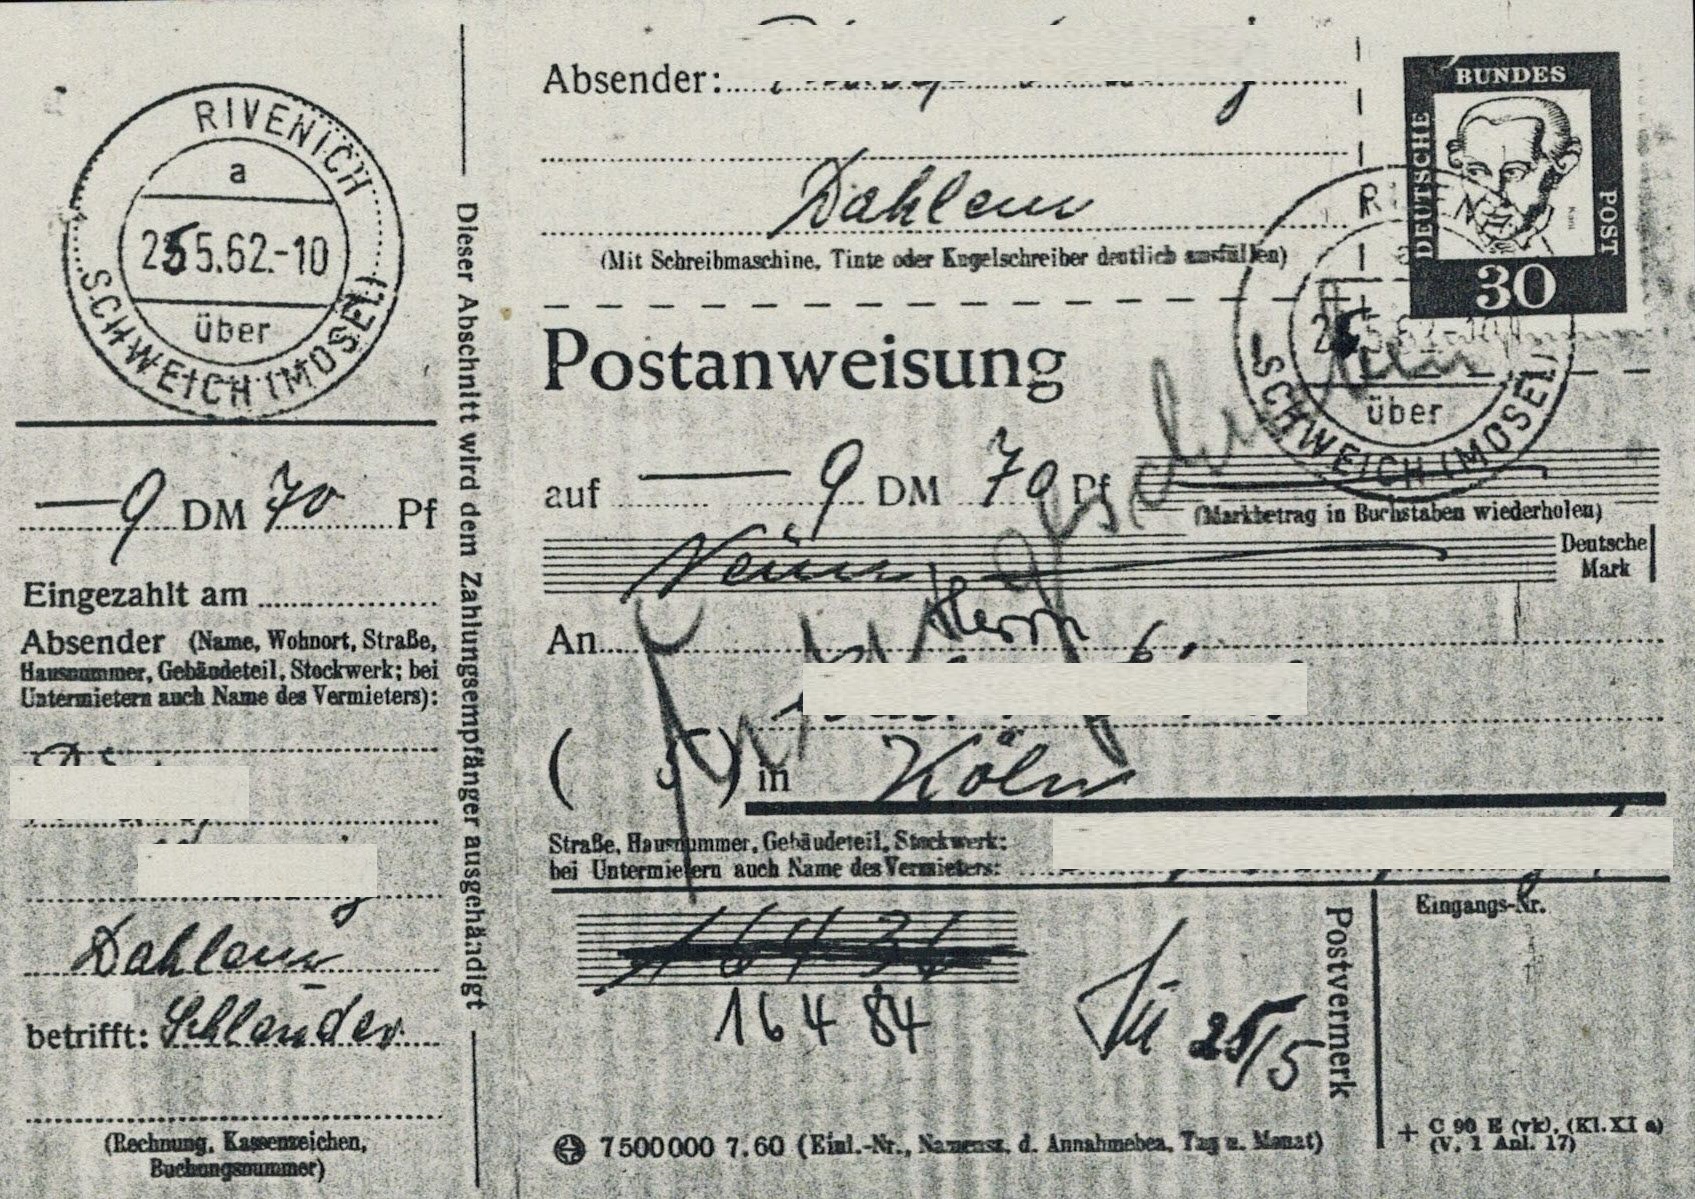 RIVENICH
a
25.5.62.-10
über
SCHWEICH (MOSEL)
9 DM 70 Pf
Eingezahlt am
Absender (Name, Wohnort, Straße,
Hausnummer, Gebäudeteil, Stockwerk; bei
Untermietern auch Name des Vermieters):
Dahlem
betrifft: Schlender
(Rechnung, Kassenzeichen,
Buchungsnummer)
Dieser Abschnitt wird dem Zahlungsempfänger ausgehändigt
Absender:
Dahlem
(Mit Schreibmaschine, Tinte oder Kugelschreiber deutlich ausfüllen)
DEUTSCHE BUNDES POST
30
über
SCHWEICH (MOSEL)
Postanweisung
auf 9 DM 70 Pf
(Markbetrag in Buchstaben wiederholen)
Neun Deutsche
Mark
An Herrn
( 5 ) in Köln
Straße, Hausnummer, Gebäudeteil, Stockwerk;
bei Untermietern auch Name des Vermieters:
16484
25/5
Postvermerk
Eingangs-Nr.
7500000 7.60 (Einl.-Nr., Namensz. d. Annahmebea., Tag u. Monat)
+ C 90 E (vk), (Kl. XI a)
(V, 1 Anl. 17)